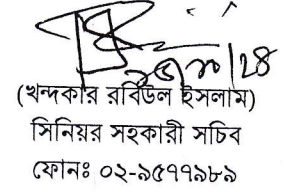 (খন্দকার রবিউল ইসলাম)
সিনিয়র সহকারী সচিব
ফোনঃ ০২-৯৫৭৭৯৮৯